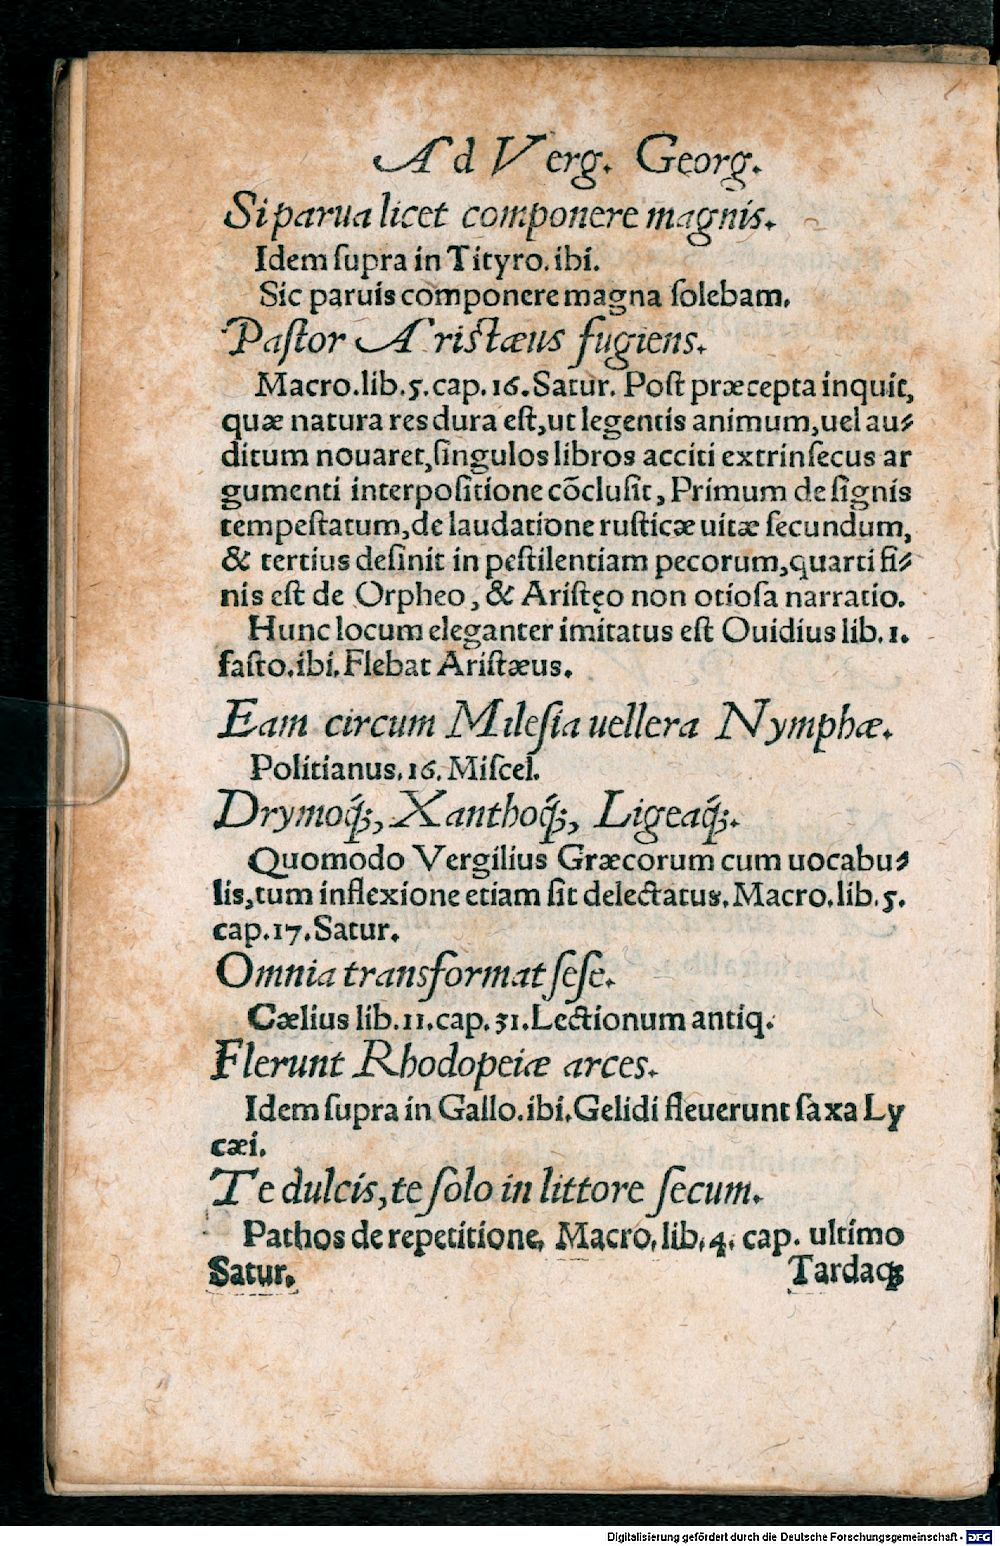 Ad Verg. Georg.
Si parua licet componere magnis.
Idem ſupra in Tityro. ibi.
Sic paruis componere magna ſolebam.
Paſtor Ariſtæus fugiens.
Macro. lib. 5. cap. 16. Satur. Poſt præcepta inquit,
quæ natura res dura eſt, ut legentis animum, uel au⸗
ditum nouaret, ſingulos libros acciti extrinſecus ar
gumenti interpoſitione cõcluſit, Primum de ſignis
tempeſtatum, de laudatione ruſticæ uitæ ſecundum,
& tertius deſinit in peſtilentiam pecorum, quarti fi⸗
nis eſt de Orpheo, & Ariſtęo non otioſa narratio.
Hunc locum eleganter imitatus eſt Ouidius lib. 1.
faſto. ibi. Flebat Ariſtæus.
Eam circum Mileſia uellera Nymphæ.
Politianus. 16. Miſcel.
Drymoq́;, Xanthoq́;, Ligeaq́;.
Quomodo Vergilius Græcorum cum uocabu⸗
lis, tum inflexione etiam ſit delectatus. Macro. lib. 5.
cap. 17. Satur.
Omnia transformat ſeſe.
Cælius lib. 11. cap. 31. Lectionum antiq.
Flerunt Rhodopeiæ arces.
Idem ſupra in Gallo. ibi. Gelidi fleuerunt ſaxa Ly
cæi.
Te dulcis, te ſolo in littore ſecum.
Pathos de repetitione. Macro. lib. 4. cap. ultimo
Satur. Tardaq;
Digitalisierung gefördert durch die Deutsche Forschungsgemeinschaft - DFG